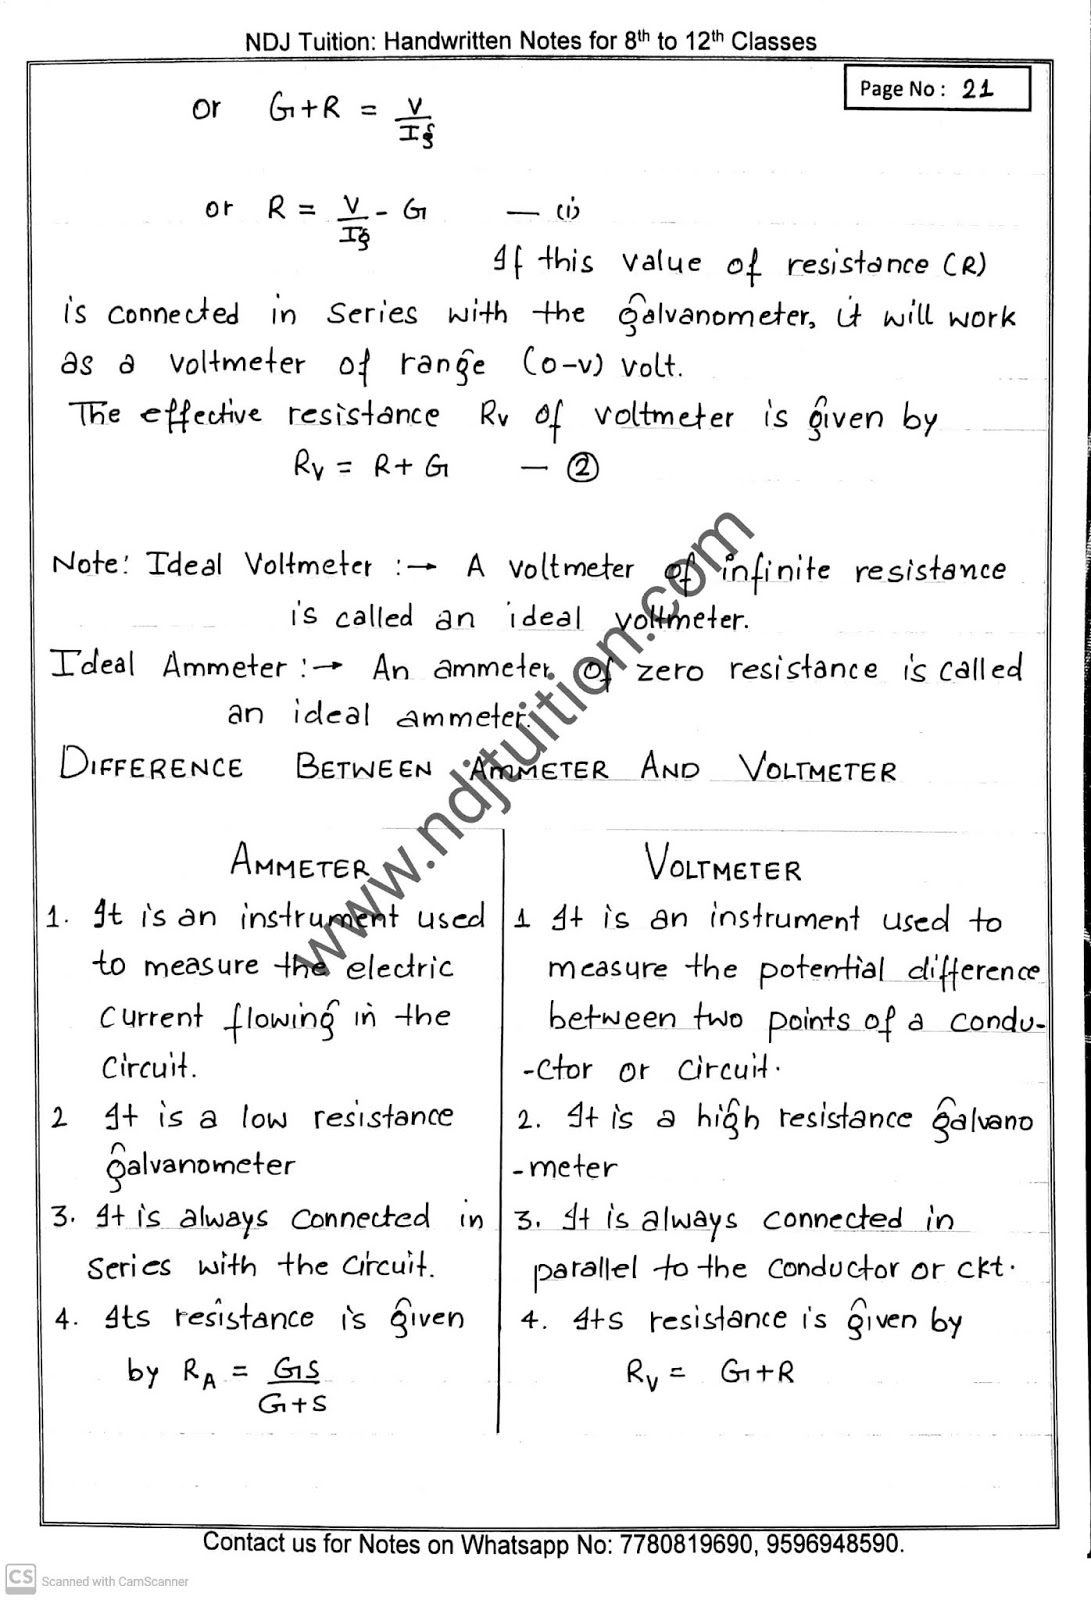 NDJ Tuition: Handwritten Notes for 8th to 12th Classes
Page No : 21
or G+R = V/Ig
or R = V/Ig - G — (i)
If this value of resistance (R)
is connected in series with the galvanometer, it will work
as a voltmeter of range (0-v) volt.
The effective resistance Rv of voltmeter is given by
Rv = R+G — ②
Note: Ideal Voltmeter :→ A voltmeter of infinite resistance
is called an ideal voltmeter.
Ideal Ammeter :→ An ammeter of zero resistance is called
an ideal ammeter.
DIFFERENCE BETWEEN AMMETER AND VOLTMETER
www.ndjtuition.com
AMMETER
1. It is an instrument used
to measure the electric
current flowing in the
circuit.
2 It is a low resistance
galvanometer
3. It is always connected in
series with the circuit.
4. Its resistance is given
by RA = GS/G+S
VOLTMETER
1 It is an instrument used to
measure the potential difference
between two points of a condu-
-ctor or circuit.
2. It is a high resistance galvano
-meter
3. It is always connected in
parallel to the conductor or ckt.
4. Its resistance is given by
Rv = G+R
Contact us for Notes on Whatsapp No: 7780819690, 9596948590.
CS Scanned with CamScanner